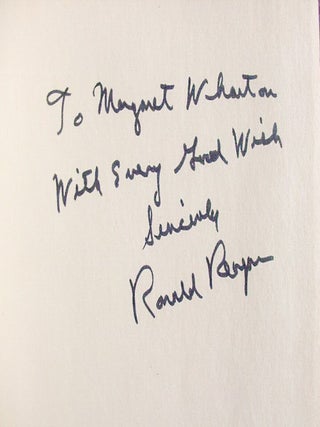 To Margaret Wharton
With Every Good Wish
Sincerely
Ronald Reagan